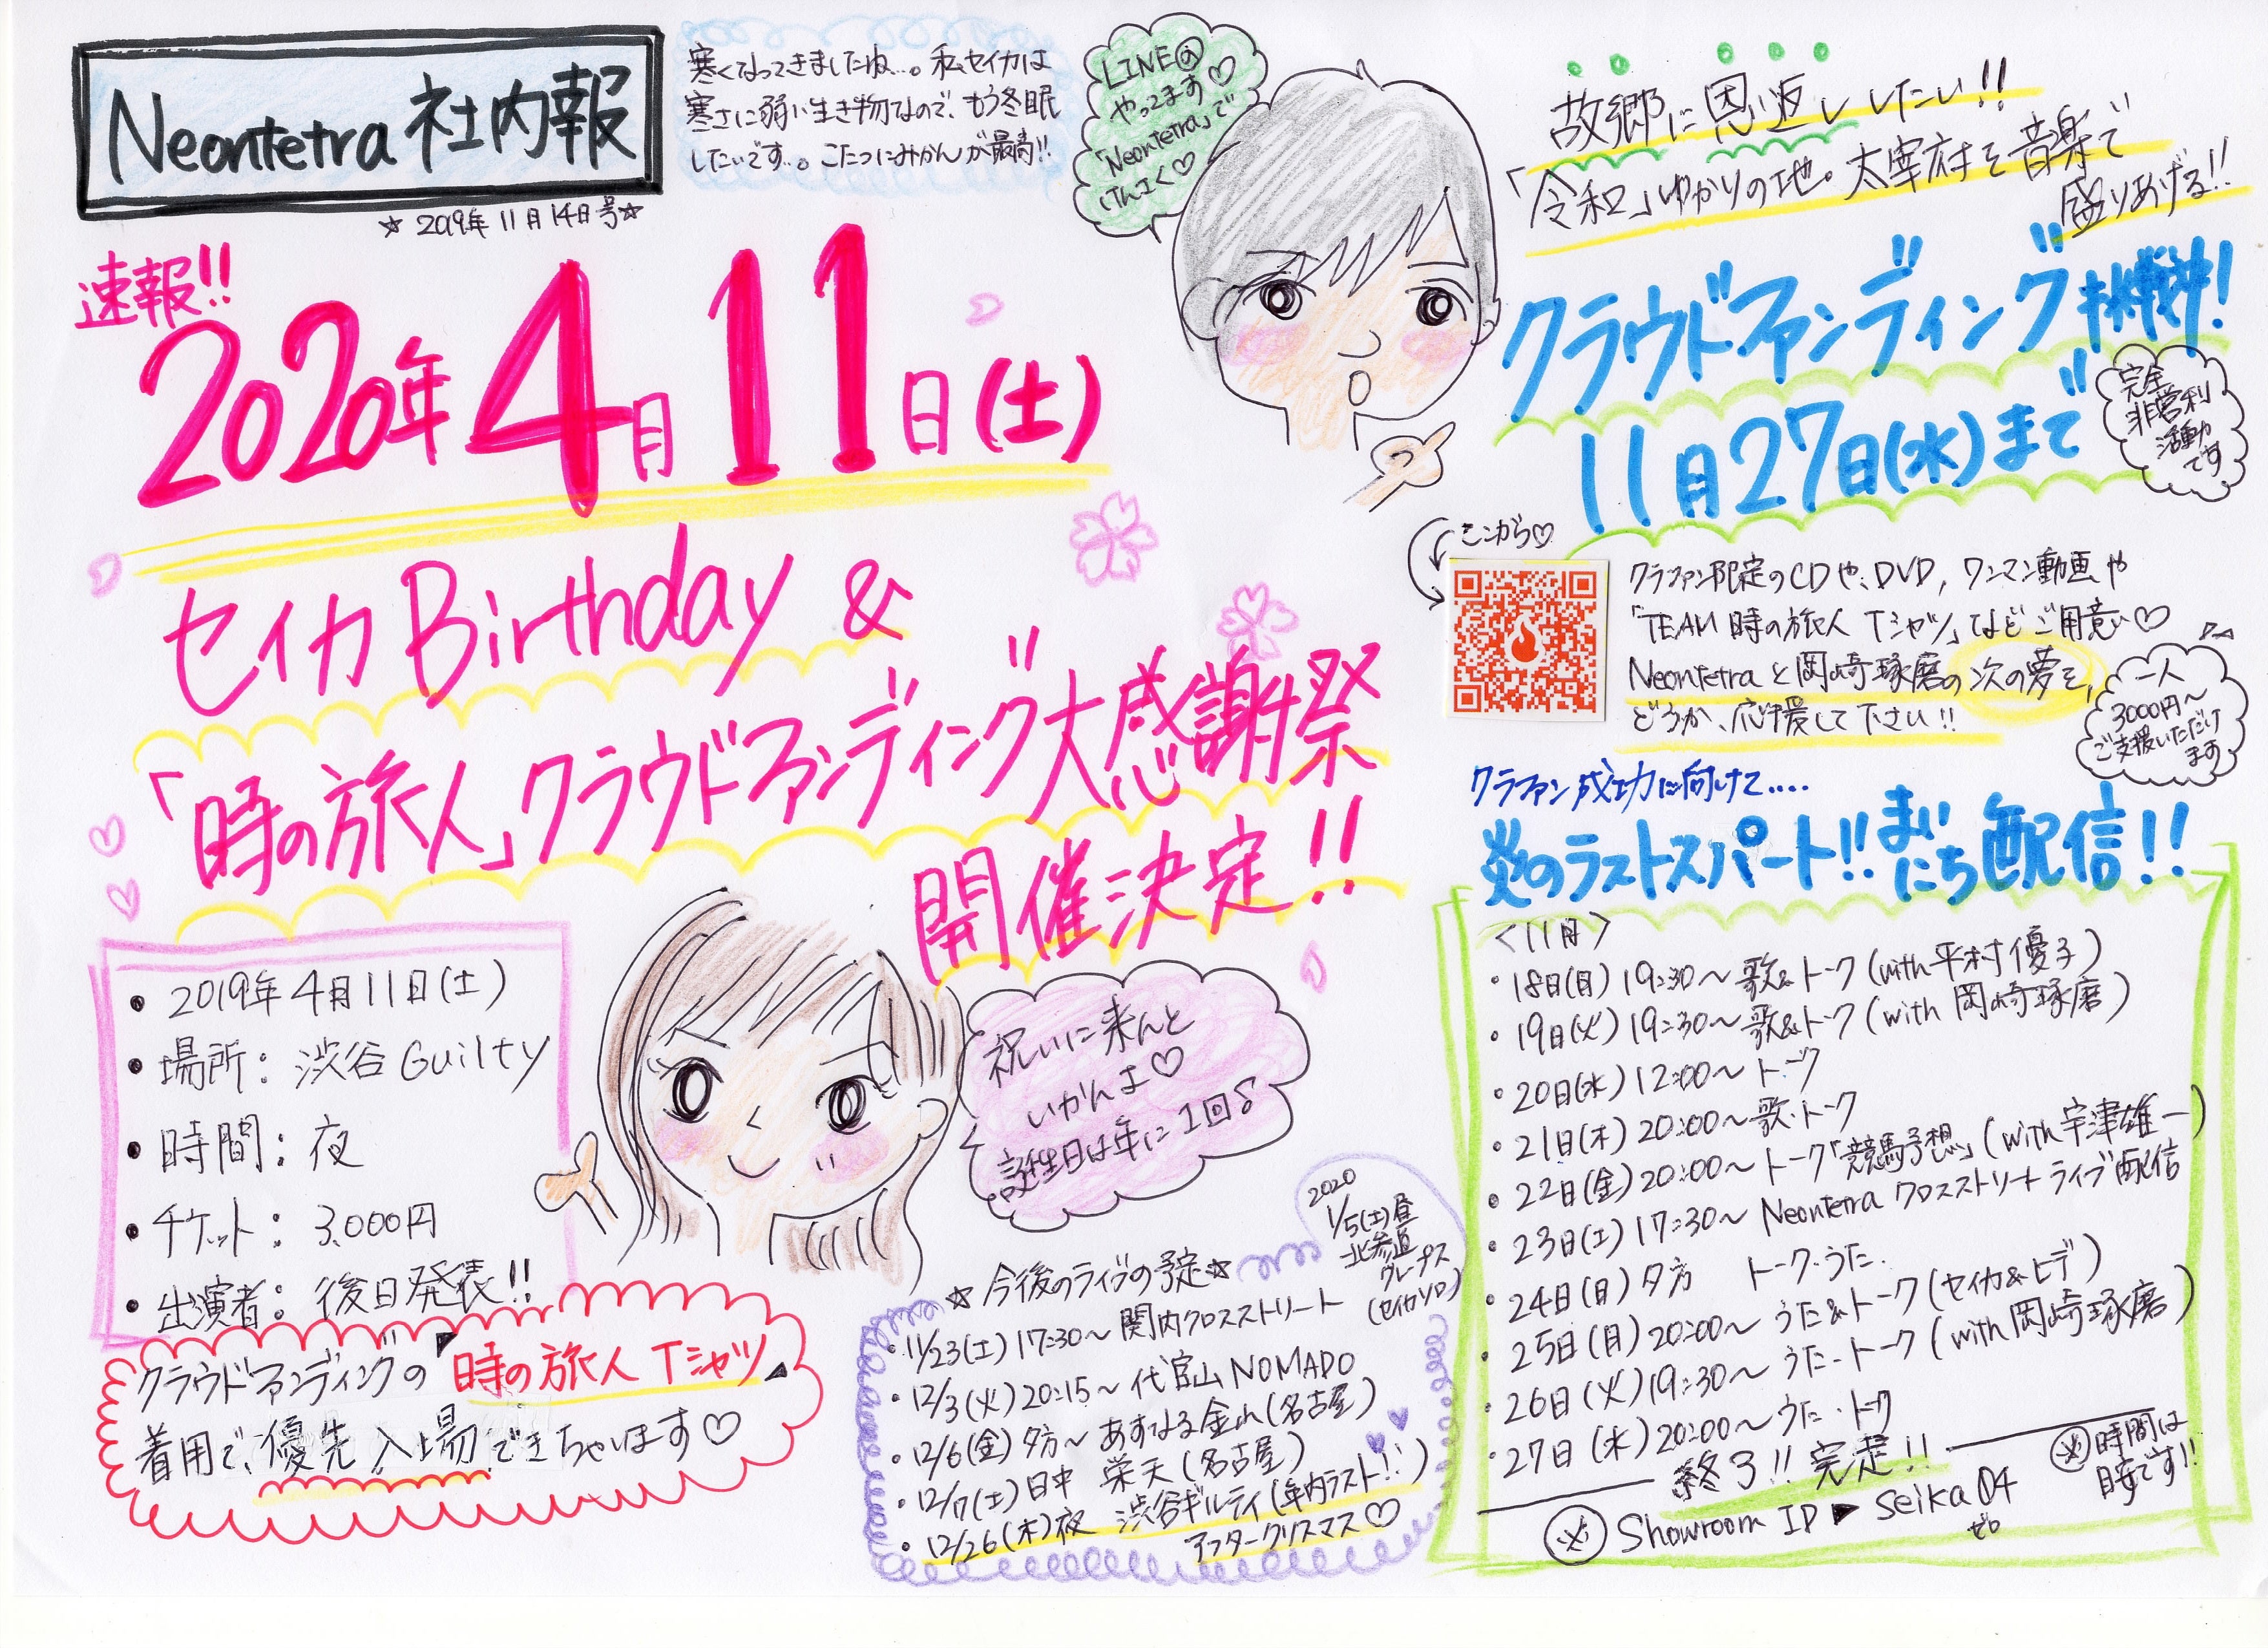 Neontetra 社内報
☆ 2019年 11月14日号☆
寒くなってきましたね…。私セイカは
寒さに弱い生き物なので、もう冬眠
したいです…。こたつにみかんが最高!!
LINE@
やってます♡
「Neontetra」で
けんさく♡
速報!!
2020年4月11日(土)
セイカ Birthday &
「時の旅人」クラウドファンディング大感謝祭
開催決定!!
• 2019年4月11日(土)
• 場所: 渋谷 Guilty
• 時間: 夜
• チケット: 3,000円
• 出演者: 後日発表!!
クラウドファンディングの "時の旅人 Tシャツ"
着用で、優先入場できちゃいます♡
祝いに来んと
いかんよ♡
誕生日は年に1回
☆今後のライブの予定☆
2020
1/5(土)昼
北参道
グレープス
(セイカソロ)
• 11/23(土) 17:30〜 関内クロスストリート
• 12/3(火) 20:15〜 代官山 NOMADO
• 12/6(金) 夕方〜 あすなる金山(名古屋)
• 12/7(土) 日中 栄天(名古屋)
• 12/26(木)夜 渋谷ギルティ(年内ラスト!!)
アフタークリスマス♡
故郷に恩返ししたい!!
「令和」ゆかりの地。太宰府を音楽で
盛りあげる!!
クラウドファンディング挑戦!
11月27日(水)まで
完全
非営利
活動
です
ここから♡
クラファン限定のCDや、DVD, ワンマン動画や
「TEAM 時の旅人 Tシャツ」などご用意♡
Neontetraと岡崎琢磨の次の夢を、
どうか、応援して下さい!!
一人
3000円〜
ご支援いただけ
ます
クラファン成功に向けて....
炎のラストスパート!! まいにち配信!!
<11月>
• 18日(月) 19:30〜 歌&トーク(with 平村優子)
• 19日(火) 19:30〜 歌&トーク(with 岡崎琢磨)
• 20日(水) 12:00〜 トーク
• 21日(木) 20:00〜 歌・トーク
• 22日(金) 20:00〜 トーク「競馬予想」(with 宇津雄一)
• 23日(土) 17:30〜 Neontetra クロスストリート ライブ配信
• 24日(日) 夕方 トーク・うた.
• 25日(月) 20:00〜 うた&トーク(セイカ&ヒデ)
• 26日(火) 19:30〜 うた・トーク(with 岡崎琢磨)
• 27日(水) 20:00〜 うた・トーク
終了!! 完走!!
※ 時間は
目安です!!
※ Showroom ID ▶ seika04
ゼロ